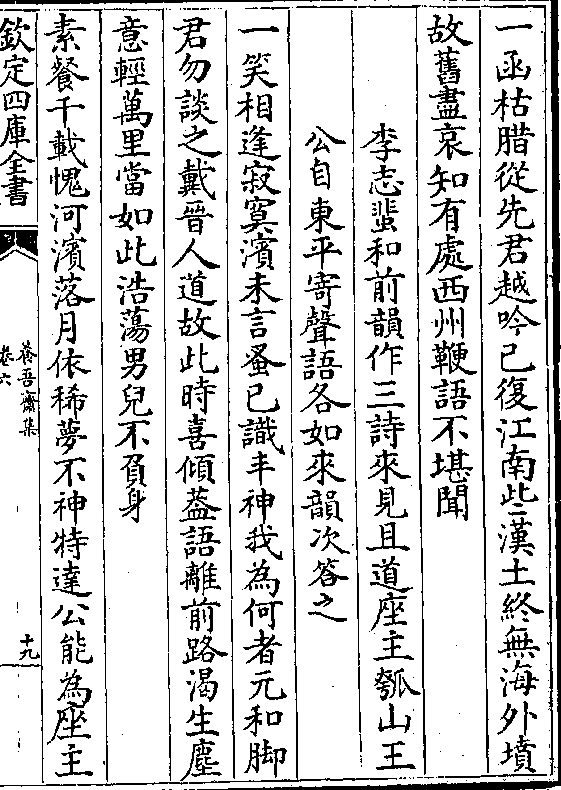 一函枯腊從先君越吟已復江南些漢土終無海外墳
故舊盡哀知有處西州鞭語不堪聞
李志蜚和前韻作三詩來見且道座主瓠山王
公自東平寄聲語各如來韻次答之
一笑相逢寂寞濱未言蚤已識丰神我為何者元和脚
君勿談之戴晉人道故此時喜傾葢語離前路渴生塵
意輕萬里當如此浩蕩男兒不負身
素餐千載愧河濱落月依稀夢不神特達公能為座主
欽定四庫全書
養吾齋集
卷六
十九